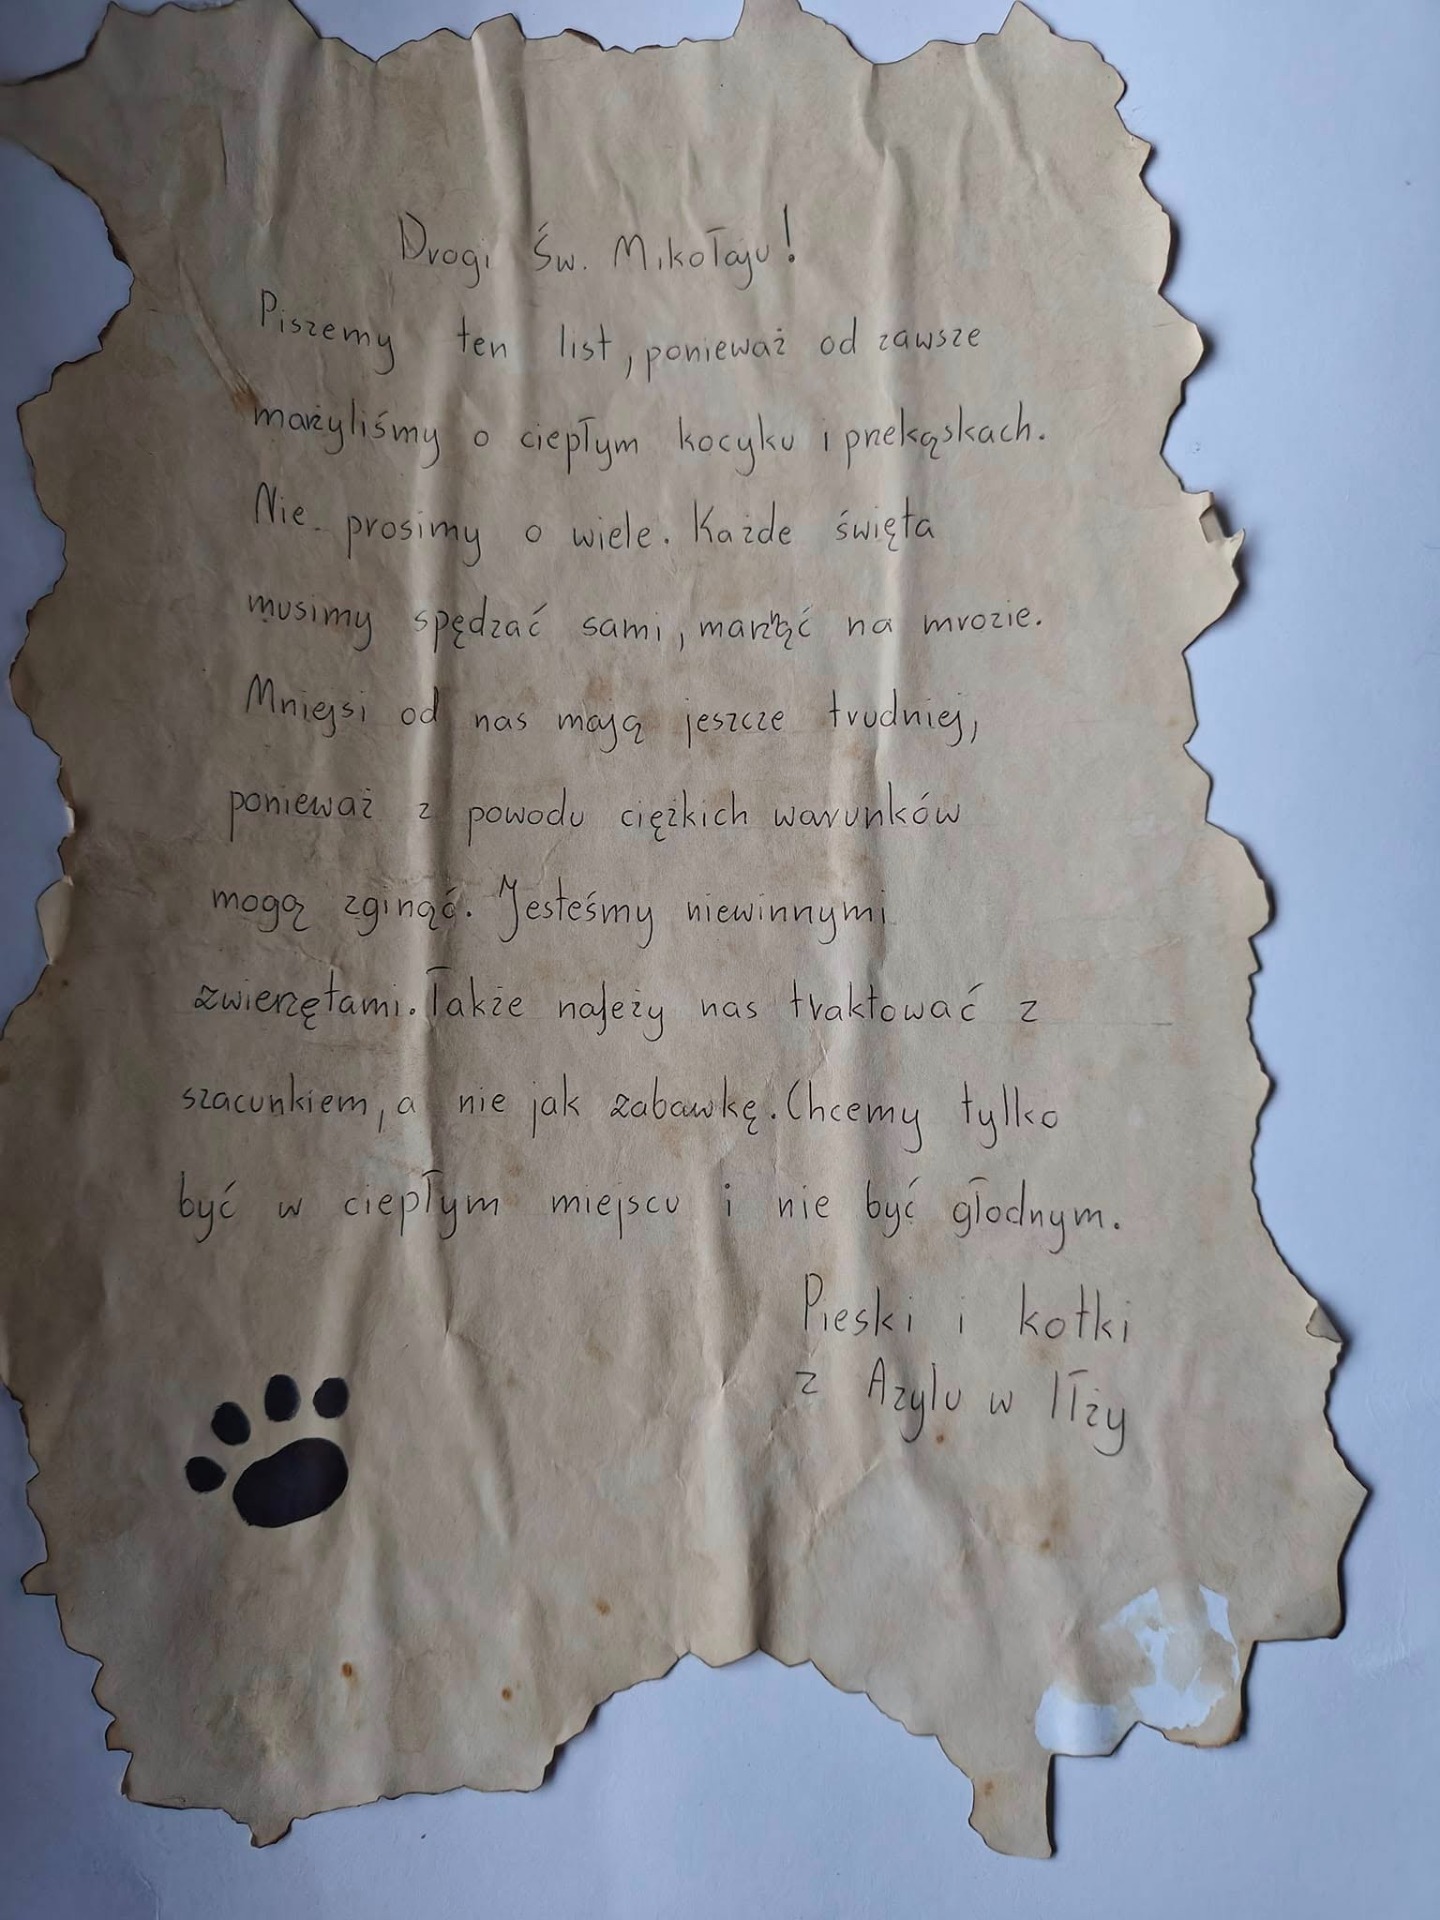 Drogi Św. Mikołaju!
Piszemy ten list, ponieważ od zawsze
marzyliśmy o ciepłym kocyku i przekąskach.
Nie prosimy o wiele. Każde święta
musimy spędzać sami, na mrozie.
Mniejsi od nas mają jeszcze trudniej,
ponieważ z powodu ciężkich warunków
mogą zginąć. Jesteśmy niewinnymi
zwierzętami. Także należy nas traktować z
szacunkiem, a nie jak zabawkę. Chcemy tylko
być w ciepłym miejscu i nie być głodnym.
Pieski i kotki
z Azylu w Iłży